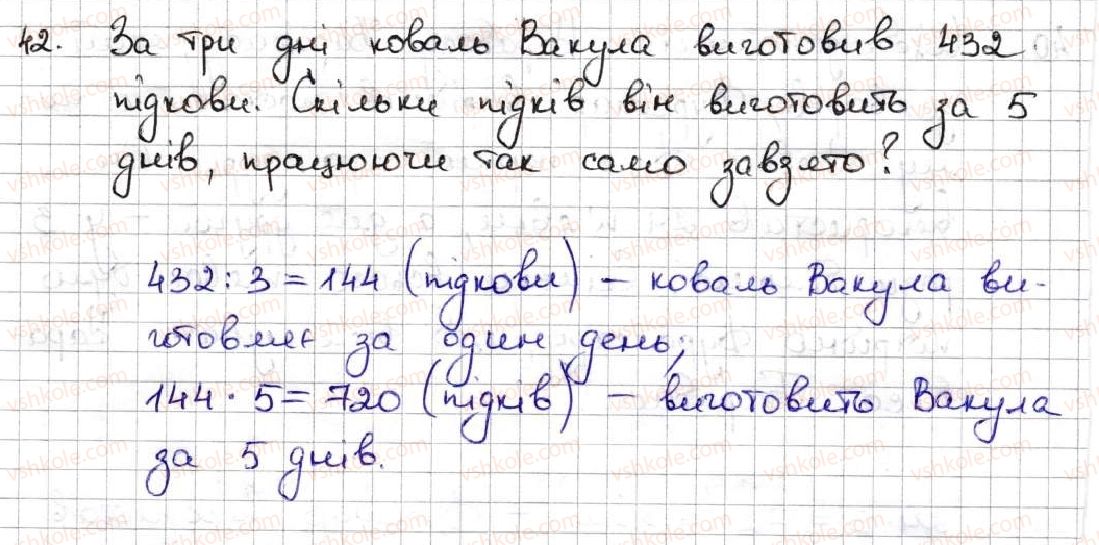 42. За три дні коваль Вакула виготовив 432
підкови. Скільки підків він виготовить за 5
днів, працюючи так само завзято?
432 : 3 = 144 (підкови) – коваль Вакула ви-
готовляє за один день;
144 · 5 = 720 (підків) – виготовить Вакула
за 5 днів.